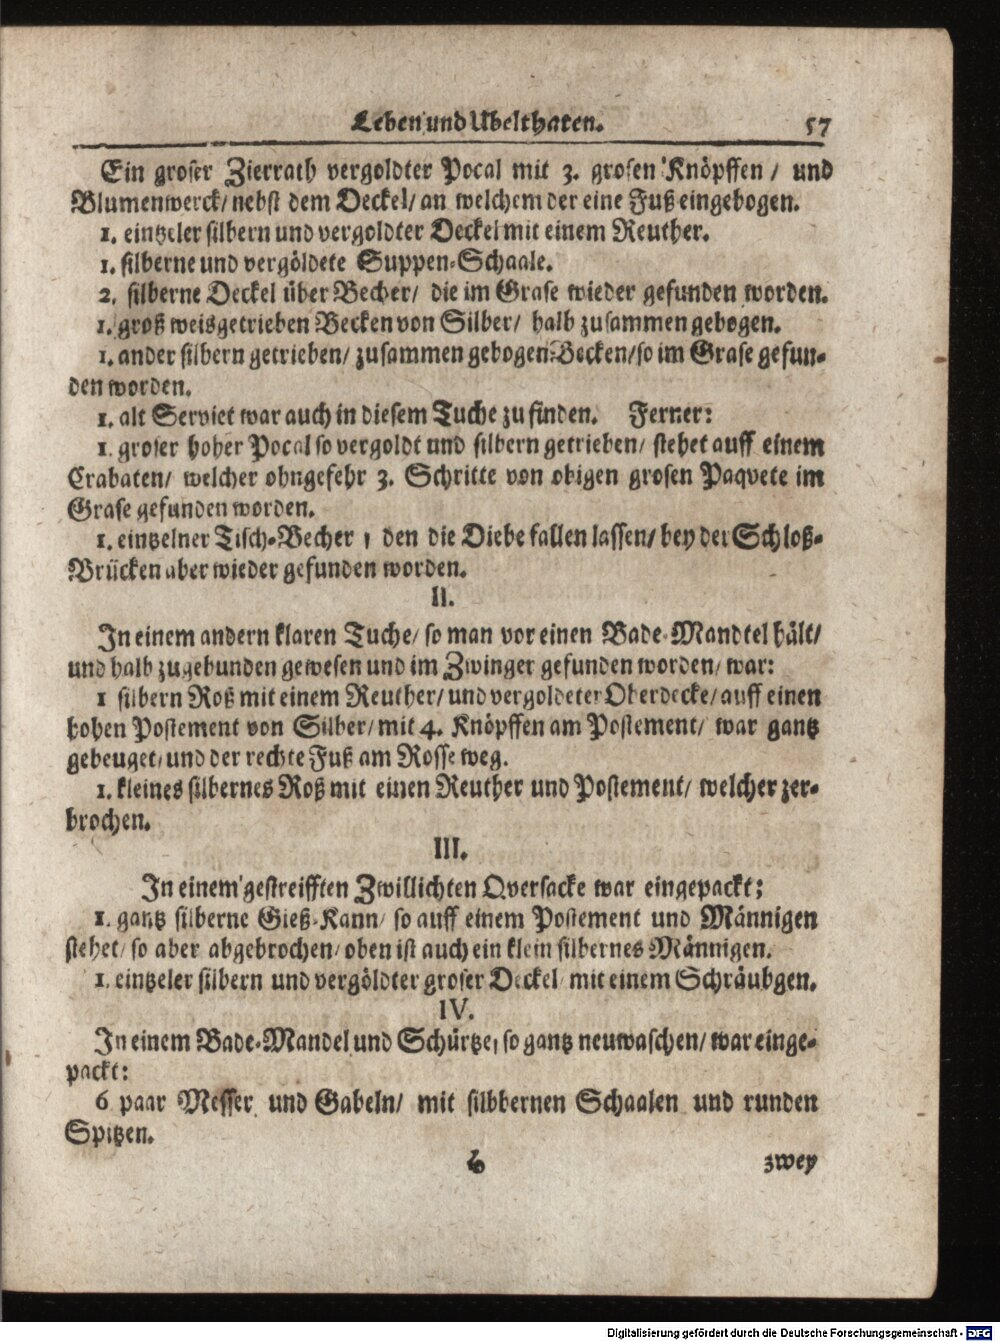 Leben und Ubelthaten. 57
Ein groser Zierrath vergoldter Pocal mit 3. grosen Knöpffen / und
Blumenwerck/ nebst dem Deckel/ an welchem der eine Fuß eingebogen.
1. eintzeler silbern und vergoldter Deckel mit einem Reuther.
1. silberne und vergöldete Suppen-Schaale.
2. silberne Deckel über Becher/ die im Grase wieder gefunden worden.
1. groß weisgetrieben Becken von Silber/ halb zusammen gebogen.
1. ander silbern getrieben/ zusammen gebogen Becken/ so im Grase gefun-
den worden.
1. alt Serviet war auch in diesem Tuche zu finden. Ferner:
1. groser hoher Pocal so vergoldt und silbern getrieben/ stehet auff einem
Crabaten/ welcher ohngefehr 3. Schritte von obigen grosen Paqvete im
Grase gefunden worden.
1. eintzelner Tisch-Becher / den die Diebe fallen lassen/ bey der Schloß-
Brücken aber wieder gefunden worden.
II.
In einem andern klaren Tuche/ so man vor einen Bade-Mandtel hält/
und halb zugebunden gewesen und im Zwinger gefunden worden/ war:
1 silbern Roß mit einem Reuther/ und vergoldeter Oberdecke/ auff einen
hohen Postement von Silber/ mit 4. Knöpffen am Postement/ war gantz
gebeuget/ und der rechte Fuß am Rosse weg.
1. kleines silbernes Roß mit einen Reuther und Postement/ welcher zer-
brochen.
III.
In einem gestreifften Zwillichten Qversacke war eingepackt;
1. gantz silberne Gieß-Kann/ so auff einem Postement und Männigen
stehet/ so aber abgebrochen/ oben ist auch ein klein silbernes Männigen.
1. eintzeler silbern und vergöldter groser Deckel/ mit einem Schräubgen.
IV.
In einem Bade-Mandel und Schürtze/ so gantz neuwaschen/ war einge-
packt:
6 paar Messer und Gabeln/ mit silbbernen Schaalen und runden
Spitzen.
h zwey
Digitalisierung gefördert durch die Deutsche Forschungsgemeinschaft - DFG